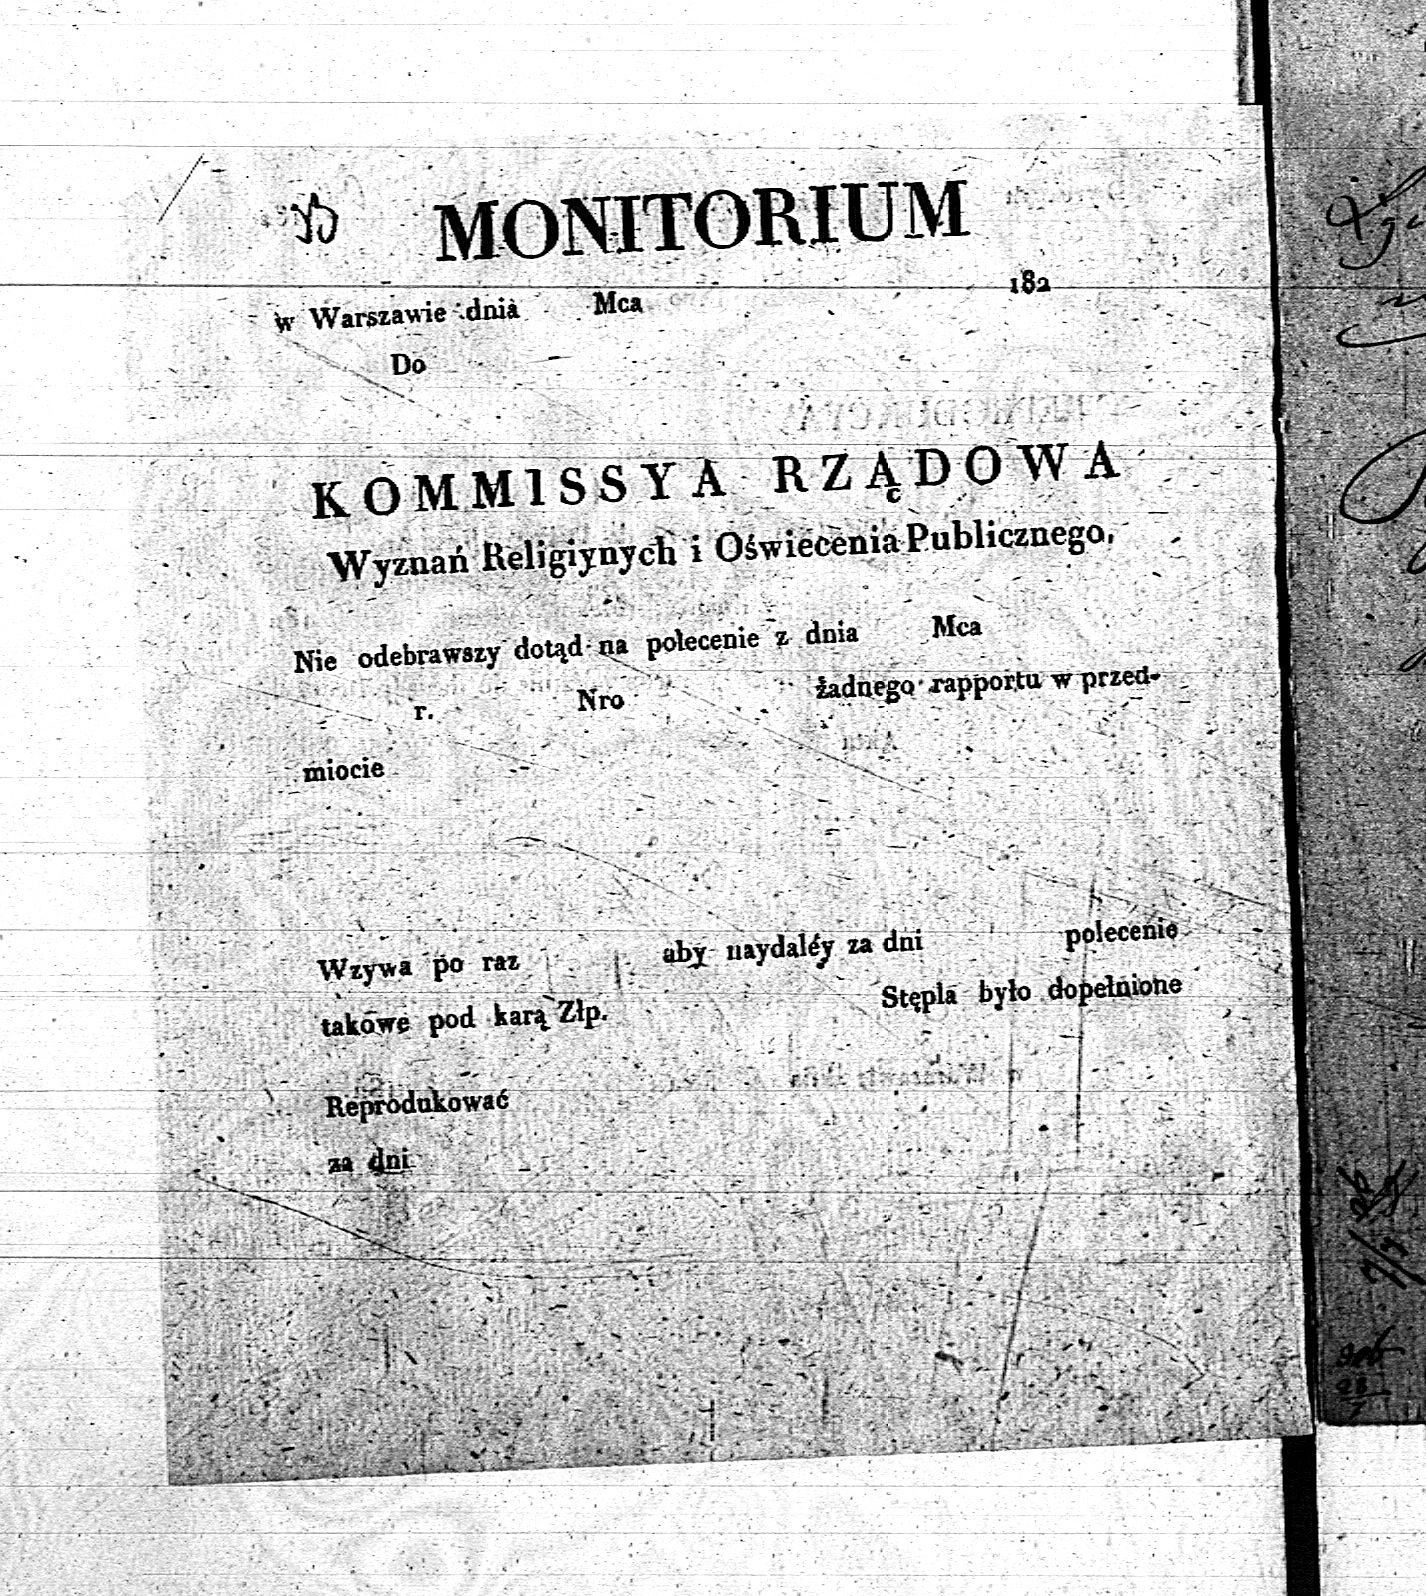 MONITORIUM
w Warszawie dnia Mca 182
Do
KOMMISSYA RZĄDOWA
Wyznań Religiynych i Oświecenia Publicznego.
Nie odebrawszy dotąd na polecenie z dnia Mca
r. Nro żadnego rapportu w przed-
miocie
Wzywa po raz aby naydaléy za dni polecenie
takowe pod karą Złp. Stępla było dopełnione
Reprodukować
za dni